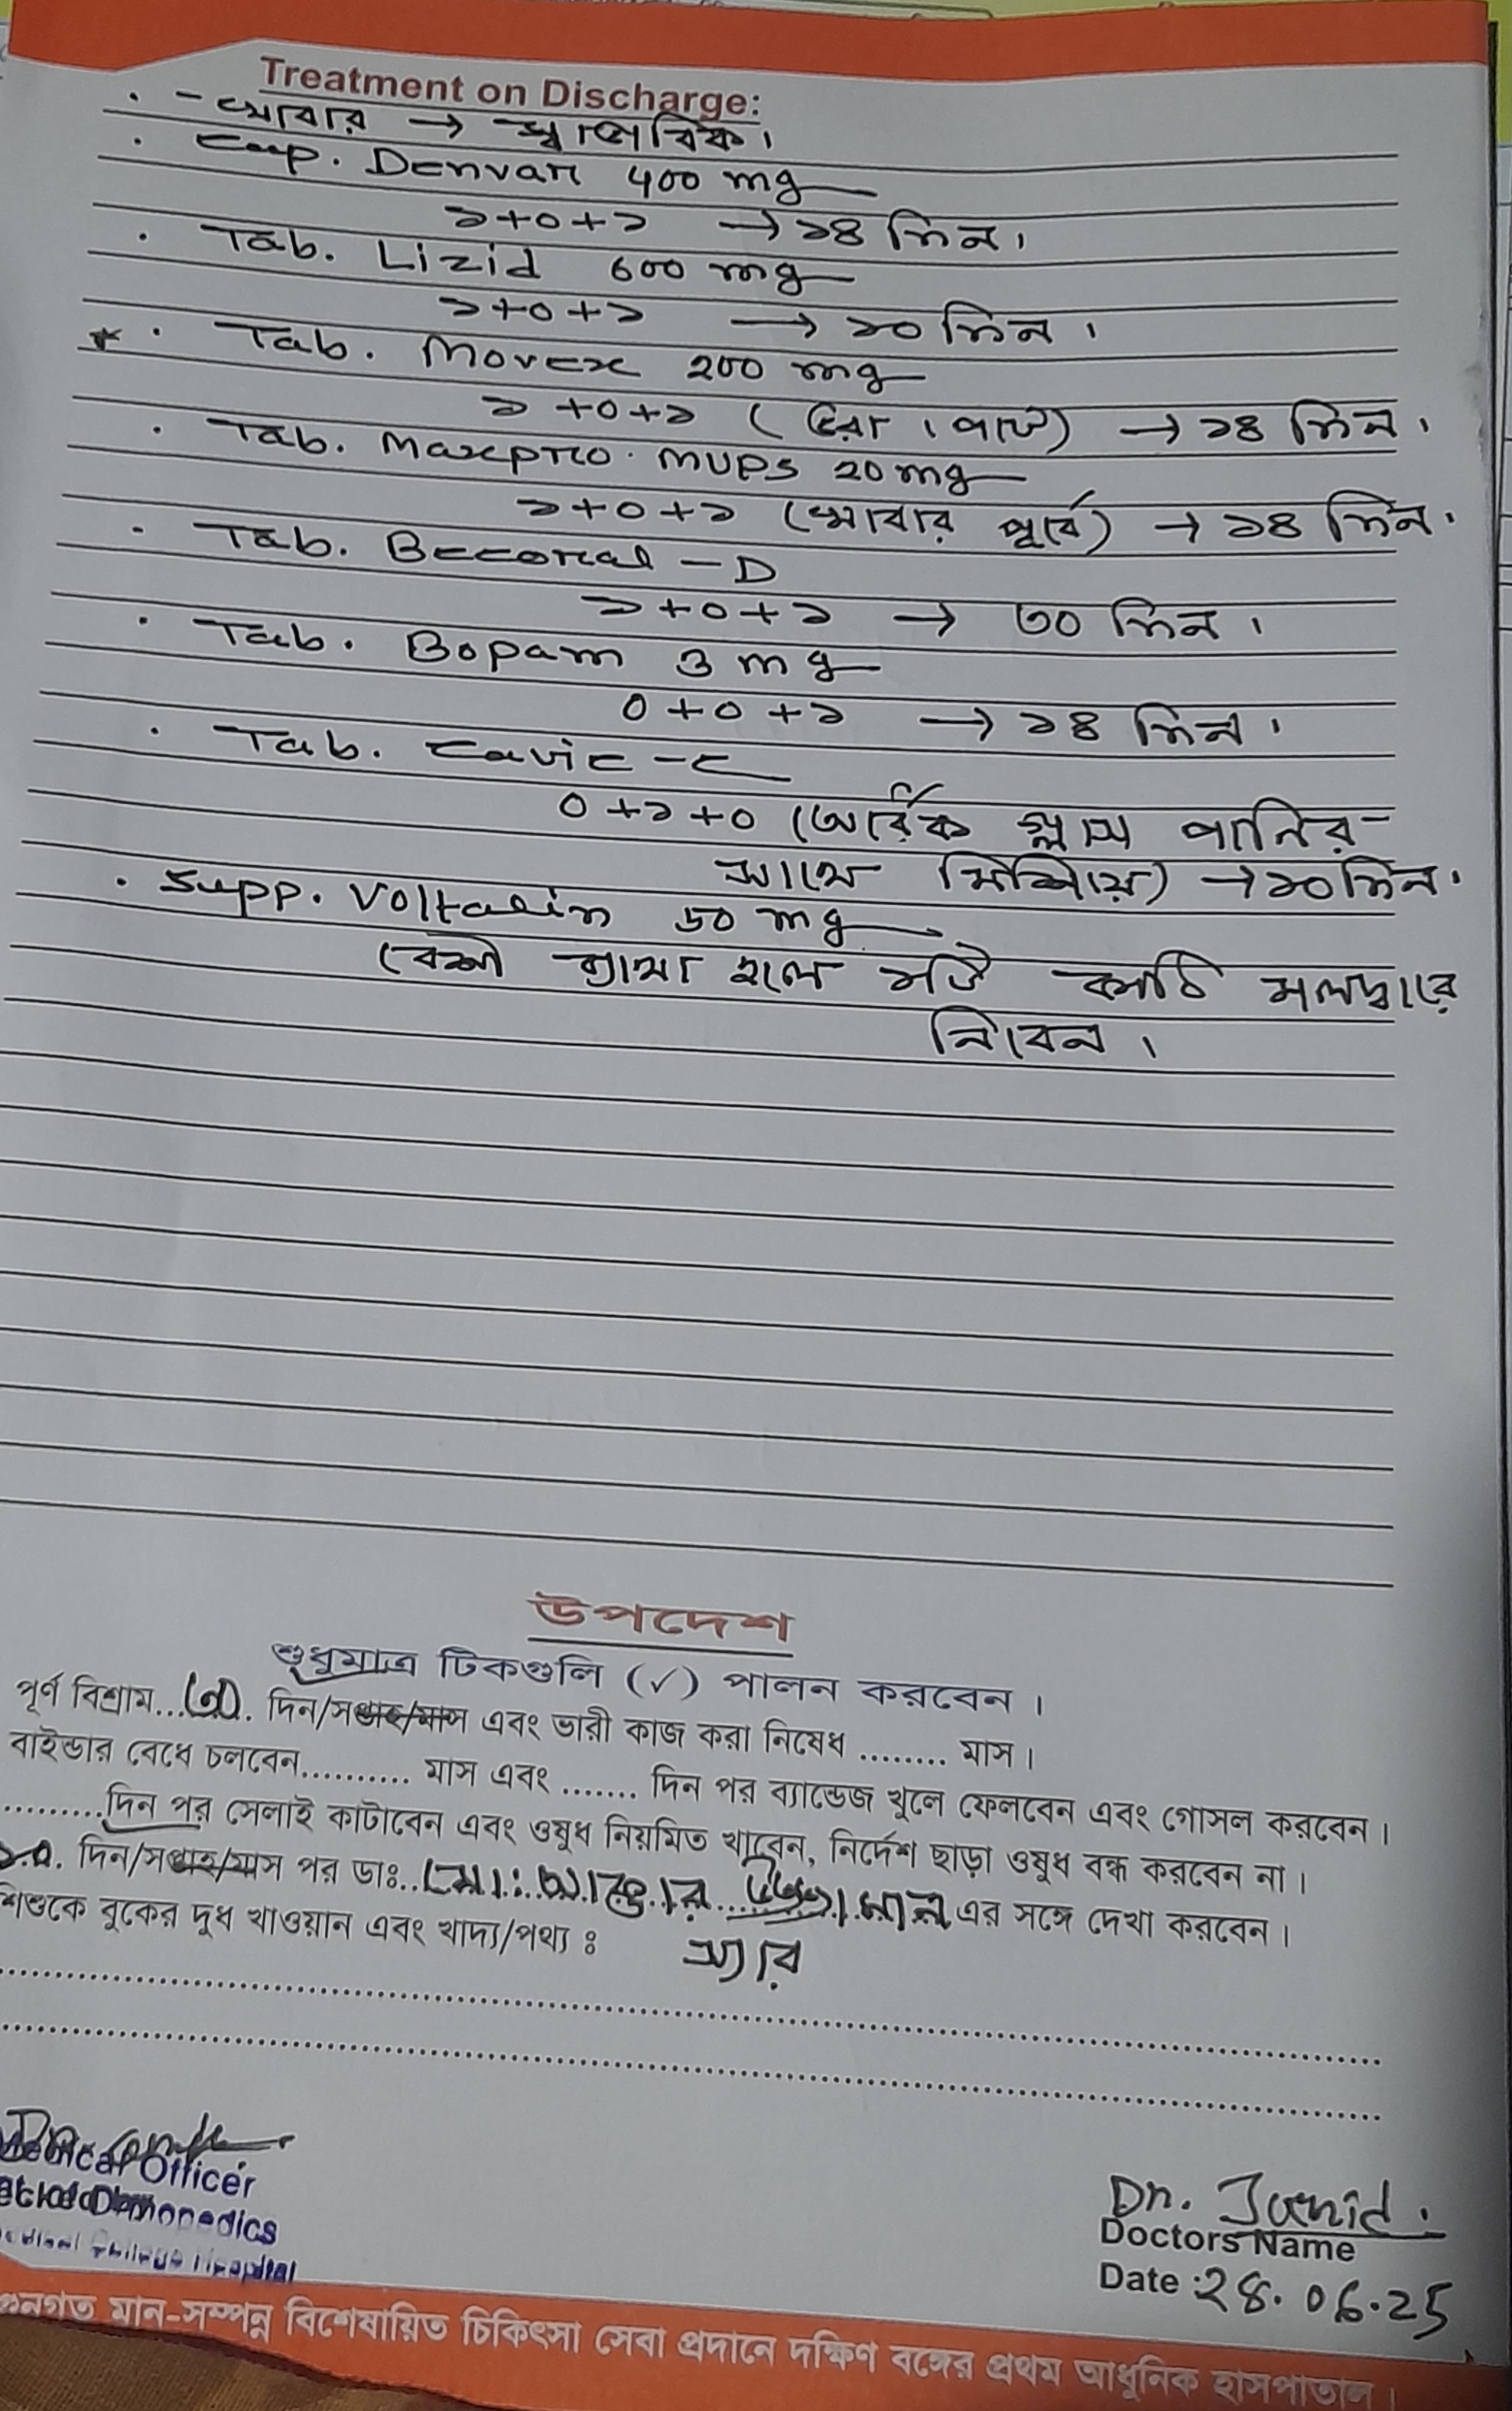 Treatment on Discharge:
- খাবার → স্বাভাবিক।
Cap. Denvar 400 mg
১+০+১ → ১৪ দিন।
Tab. Lizid 600 mg
১+০+১ → ১০ দিন।
* Tab. Movex 200 mg
১+০+১ (ভরা পেটে) → ১৪ দিন।
Tab. Maxpro MUPS 20 mg
১+০+১ (খাবার পূর্বে) → ১৪ দিন।
Tab. Becoral - D
১+০+১ → ৩০ দিন।
Tab. Bopam 3 mg
০+০+১ → ১৪ দিন।
Tab. Cavic-C
০+১+০ (অর্ধেক গ্লাস পানির
সাথে মিশিয়ে) → ১০ দিন।
Supp. Voltalin 50 mg
বেশী ব্যাথা হলে ১টি কাঠি মলদ্বারে
নিবেন।
উপদেশ
শুধুমাত্র টিকগুলি (✓) পালন করবেন।
পূর্ণ বিশ্রাম... দিন/সপ্তাহ/মাস এবং ভারী কাজ করা নিষেধ ........ মাস।
বাইন্ডার বেধে চলবেন.......... মাস এবং ....... দিন পর ব্যান্ডেজ খুলে ফেলবেন এবং গোসল করবেন।
.........দিন পর সেলাই কাটাবেন এবং ওষুধ নিয়মিত খাবেন, নির্দেশ ছাড়া ওষুধ বন্ধ করবেন না।
১০. দিন/সপ্তাহ/মাস পর ডাঃ.. মোঃ এর সঙ্গে দেখা করবেন।
স্যার
শিশুকে বুকের দুধ খাওয়ান এবং খাদ্য/পথ্য ঃ
Medical Officer
Dr. Junid.
Doctors Name
Date : 28.06.25
গুনগত মান-সম্পন্ন বিশেষায়িত চিকিৎসা সেবা প্রদানে দক্ষিণ বঙ্গের প্রথম আধুনিক হাসপাতাল।